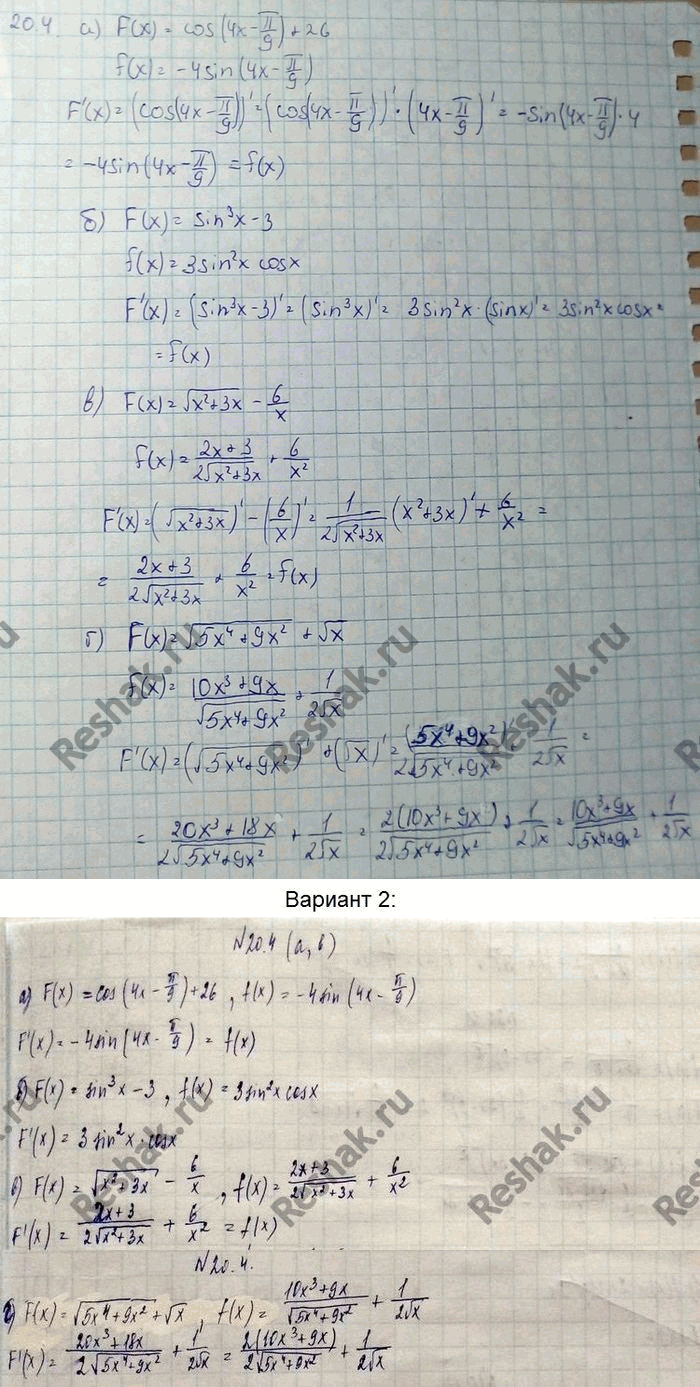 20.4. а) F(x) = cos(4x-π/9)+26
f(x) = -4sin(4x-π/9)
F'(x) = (cos(4x-π/9))' = (cos(4x-π/9))'·(4x-π/9)' = -sin(4x-π/9)·4
= -4sin(4x-π/9) = f(x)
б) F(x) = sin³x-3
f(x) = 3sin²x cosx
F'(x) = (sin³x-3)' = (sin³x)' = 3sin²x·(sinx)' = 3sin²x cosx =
= f(x)
в) F(x) = √(x²+3x) - 6/x
f(x) = (2x+3)/(2√(x²+3x)) + 6/x²
F'(x) = (√(x²+3x))' - (6/x)' = 1/(2√(x²+3x)) (x²+3x)' + 6/x² =
= (2x+3)/(2√(x²+3x)) + 6/x² = f(x)
г) F(x) = √(5x⁴+9x²) + √x
f(x) = (10x³+9x)/√(5x⁴+9x²) + 1/(2√x)
F'(x) = (√(5x⁴+9x²))' + (√x)' = (5x⁴+9x²)'/(2√(5x⁴+9x²)) + 1/(2√x) =
= (20x³+18x)/(2√(5x⁴+9x²)) + 1/(2√x) = 2(10x³+9x)/(2√(5x⁴+9x²)) + 1/(2√x) = (10x³+9x)/√(5x⁴+9x²) + 1/(2√x)
Вариант 2:
N20.4 (а, в)
а) F(x) = cos(4x-π/9)+26, f(x) = -4sin(4x-π/9)
F'(x) = -4sin(4x-π/9) = f(x)
б) F(x) = sin³x-3, f(x) = 3sin²x cosx
F'(x) = 3sin²x·cosx
в) F(x) = √(x²+3x) - 6/x, f(x) = (2x+3)/(2√(x²+3x)) + 6/x²
F'(x) = (2x+3)/(2√(x²+3x)) + 6/x² = f(x)
N20.4.
г) F(x) = √(5x⁴+9x²)+√x, f(x) = (10x³+9x)/√(5x⁴+9x²) + 1/(2√x)
F'(x) = (20x³+18x)/(2√(5x⁴+9x²)) + 1/(2√x) = 2(10x³+9x)/(2√(5x⁴+9x²)) + 1/(2√x)
Reshak.ru
Reshak.ru
Reshak.ru
Reshak.ru
Reshak.ru